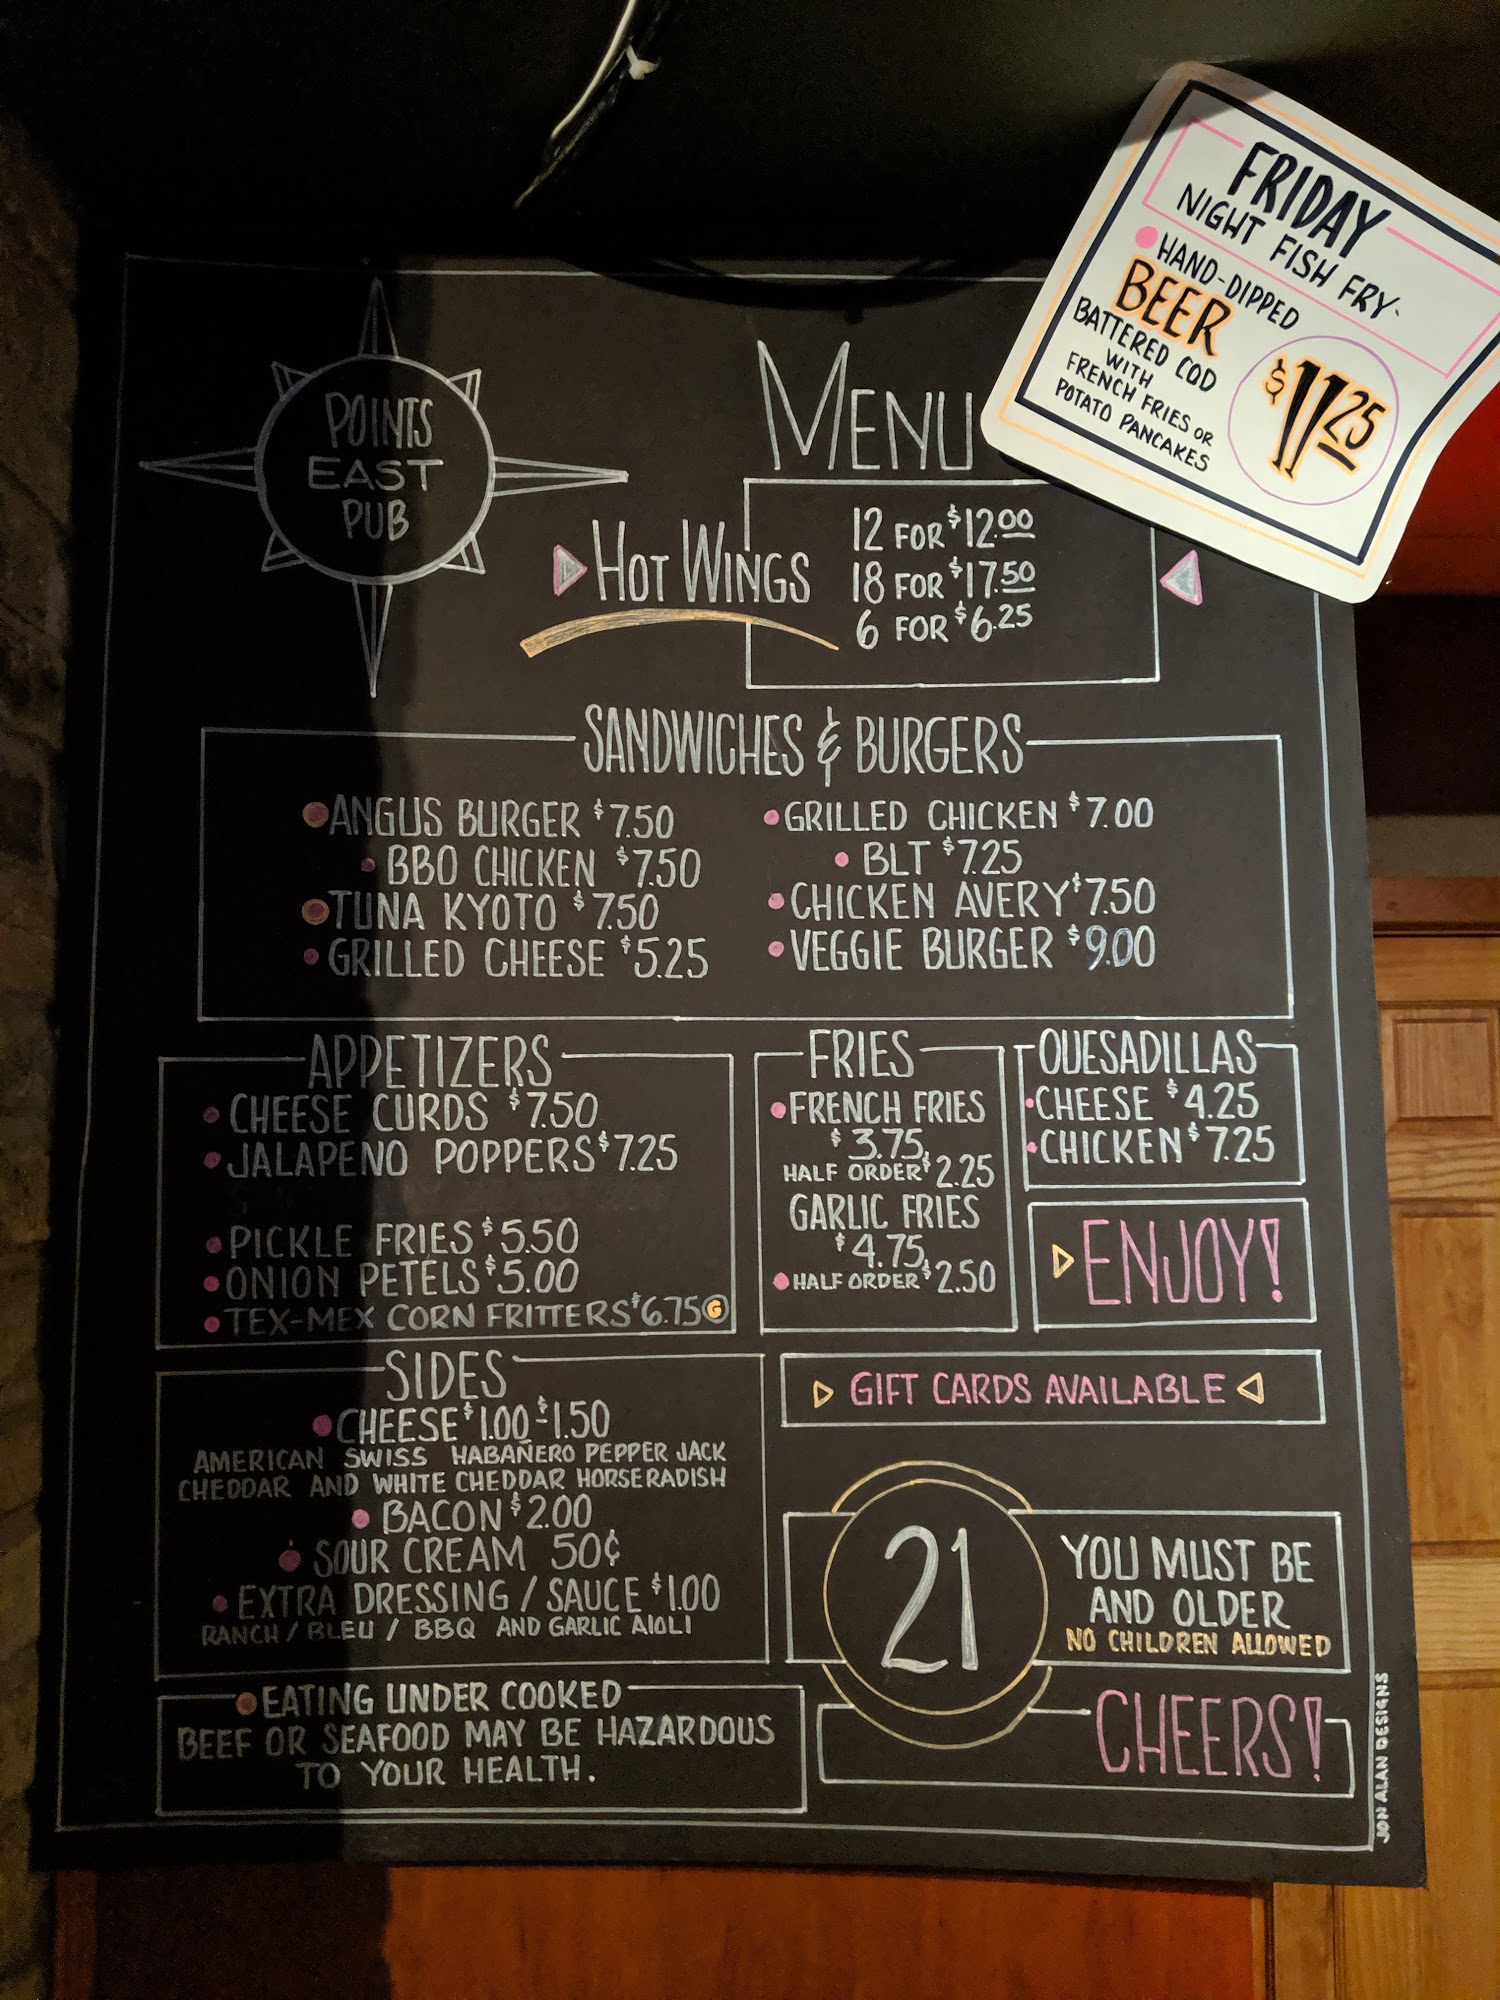 FRIDAY
NIGHT FISH FRY.
HAND-DIPPED
BEER
BATTERED COD
WITH
FRENCH FRIES OR
POTATO PANCAKES
$11.25
POINTS
EAST
PUB
MENU
HOT WINGS
12 FOR $12.00
18 FOR $17.50
6 FOR $6.25
SANDWICHES & BURGERS
ANGUS BURGER $7.50
BBQ CHICKEN $7.50
TUNA KYOTO $7.50
GRILLED CHEESE $5.25
GRILLED CHICKEN $7.00
BLT $7.25
CHICKEN AVERY $7.50
VEGGIE BURGER $9.00
APPETIZERS
CHEESE CURDS $7.50
JALAPENO POPPERS $7.25
PICKLE FRIES $5.50
ONION PETELS $5.00
TEX-MEX CORN FRITTERS $6.75 G
FRIES
FRENCH FRIES
$3.75
HALF ORDER $2.25
GARLIC FRIES
$4.75
HALF ORDER $2.50
QUESADILLAS
CHEESE $4.25
CHICKEN $7.25
ENJOY!
SIDES
CHEESE $1.00-$1.50
AMERICAN SWISS HABAÑERO PEPPER JACK
CHEDDAR AND WHITE CHEDDAR HORSERADISH
BACON $2.00
SOUR CREAM 50¢
EXTRA DRESSING / SAUCE $1.00
RANCH / BLEU / BBQ AND GARLIC AIOLI
GIFT CARDS AVAILABLE
21
YOU MUST BE
AND OLDER
NO CHILDREN ALLOWED
EATING UNDER COOKED
BEEF OR SEAFOOD MAY BE HAZARDOUS
TO YOUR HEALTH.
CHEERS!
JON ALAN DESIGNS